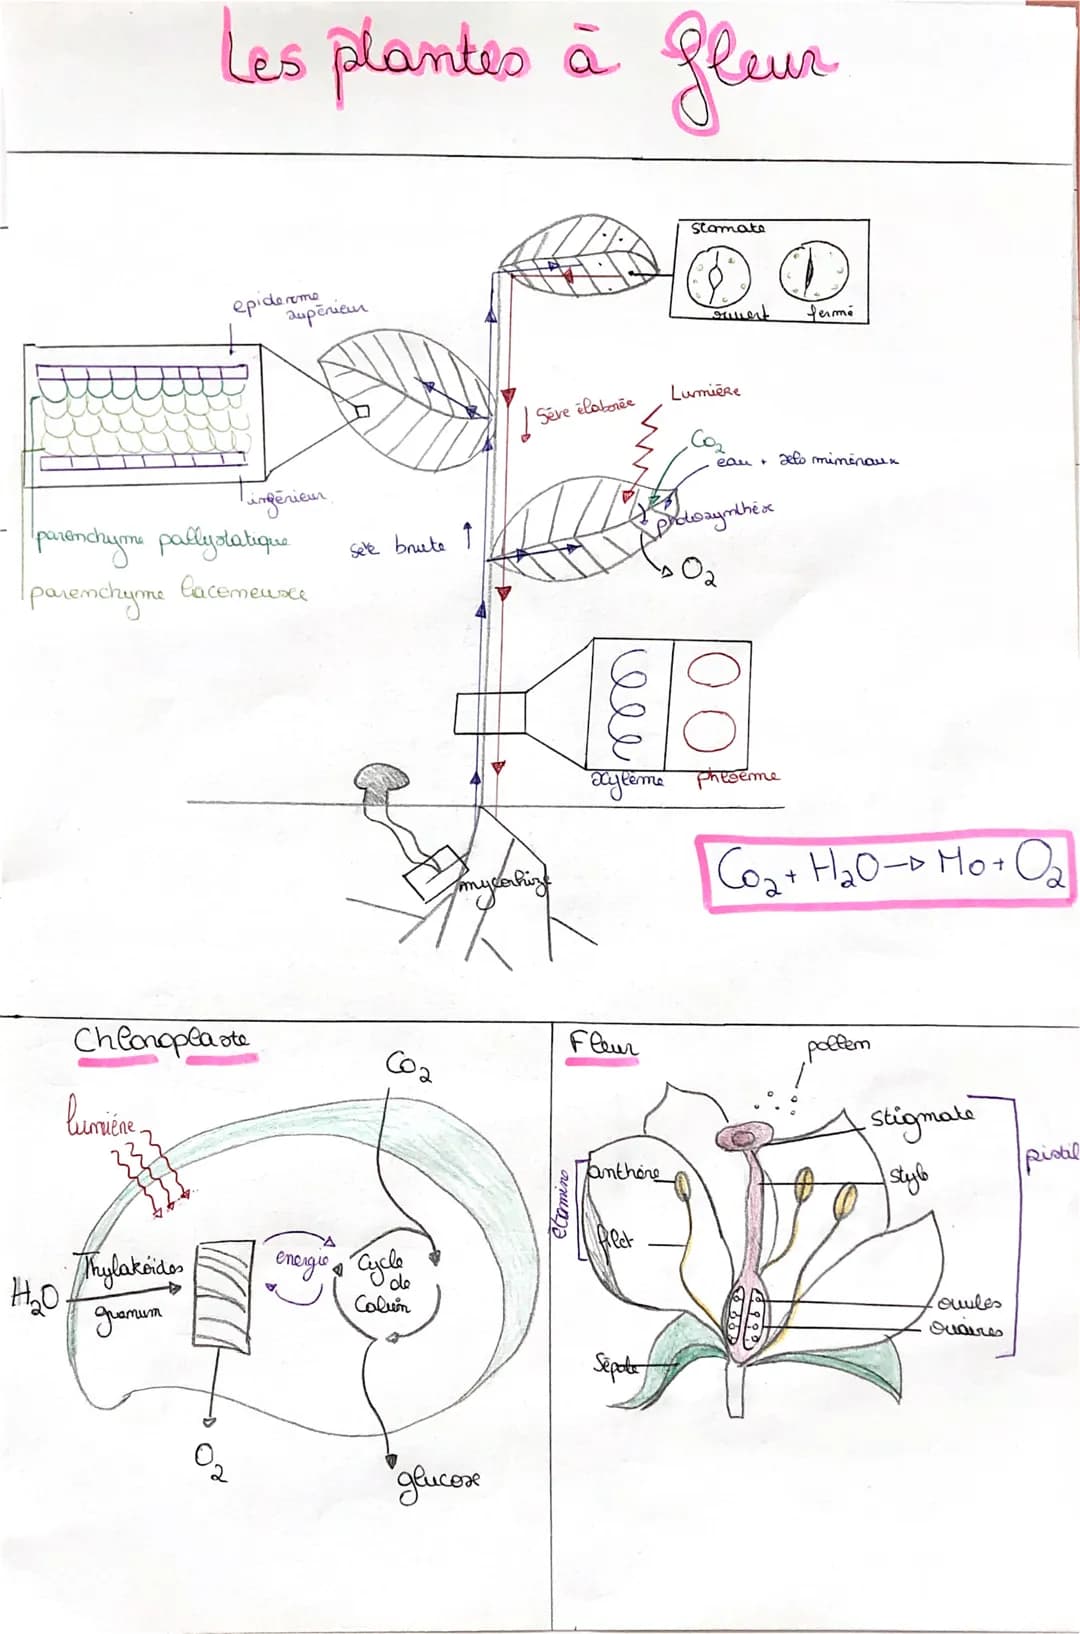 Les plantes à fleur
stomate
ouvert fermé
epiderme
supérieur
inférieur
parenchyme pallyslatique
parenchyme laceneusee
Sève élaborée
Lumière
Co2
eau + sels minéraux
photosynthèse
O2
sève brute ↑
xylème phloème
mycorhize
Co2 + H2O → Mo + O2
Chloroplaste
Co2
lumière
H2O
Thylakoïdes
granum
energie
Cycle
de
Calvin
O2
glucose
Fleur
pollen
stigmate
style
pistil
étamine
anthère
filet
ovules
ovaires
Sépale